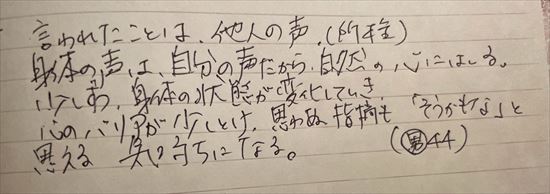 言われたことは、他人の声、(的確)
身体の声は、自分の声だから、自然の心にはいる。
少しずつ、身体の状態が変化していき
心のバリアが少しとけ、思わぬ指摘も「そうかもな」と
思える 気持ちになる。 (男44)